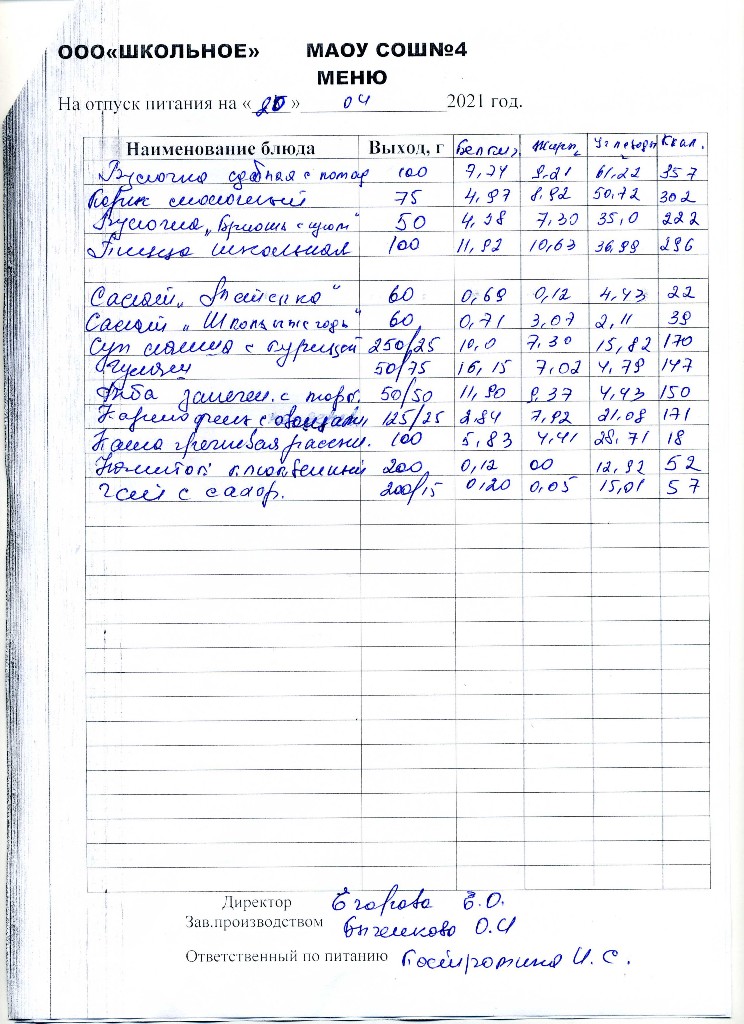 ООО«ШКОЛЬНОЕ» МАОУ СОШ№4
МЕНЮ
На отпуск питания на « » 04 2021 год.
Наименование блюда Выход, г Белки, Жиры, Углеводы Ккал.
Булочка сдобная с помад 100 9,21 61,22 357
Коржик молочный 75 4,97 8,92 50,72 302
Булочка „Бриошь с изюм“ 50 4,98 7,30 35,0 222
Пицца школьная 100 11,92 10,63 36,99 296
Салат „ “ 60 0,69 0,12 4,43 22
Салат „Школьные годы“ 60 0,71 3,07 2,11 39
Суп лапша с курицей 250/25 10,0 7,30 15,82 170
Гуляш 50/75 16,15 7,02 4,79 147
Рыба запечен. с 50/50 11,90 9,37 4,43 150
Картофель с овощами 125/25 2,84 7,92 21,08 171
Каша гречневая рассып. 100 5,83 4,41 28,71 18
Компот клюквенный 200 0,12 00 12,92 52
Чай с сахар. 200/15 0,20 0,05 15,01 57
Директор Егорова Е.О.
Зав.производством О.И
Ответственный по питанию И.С.